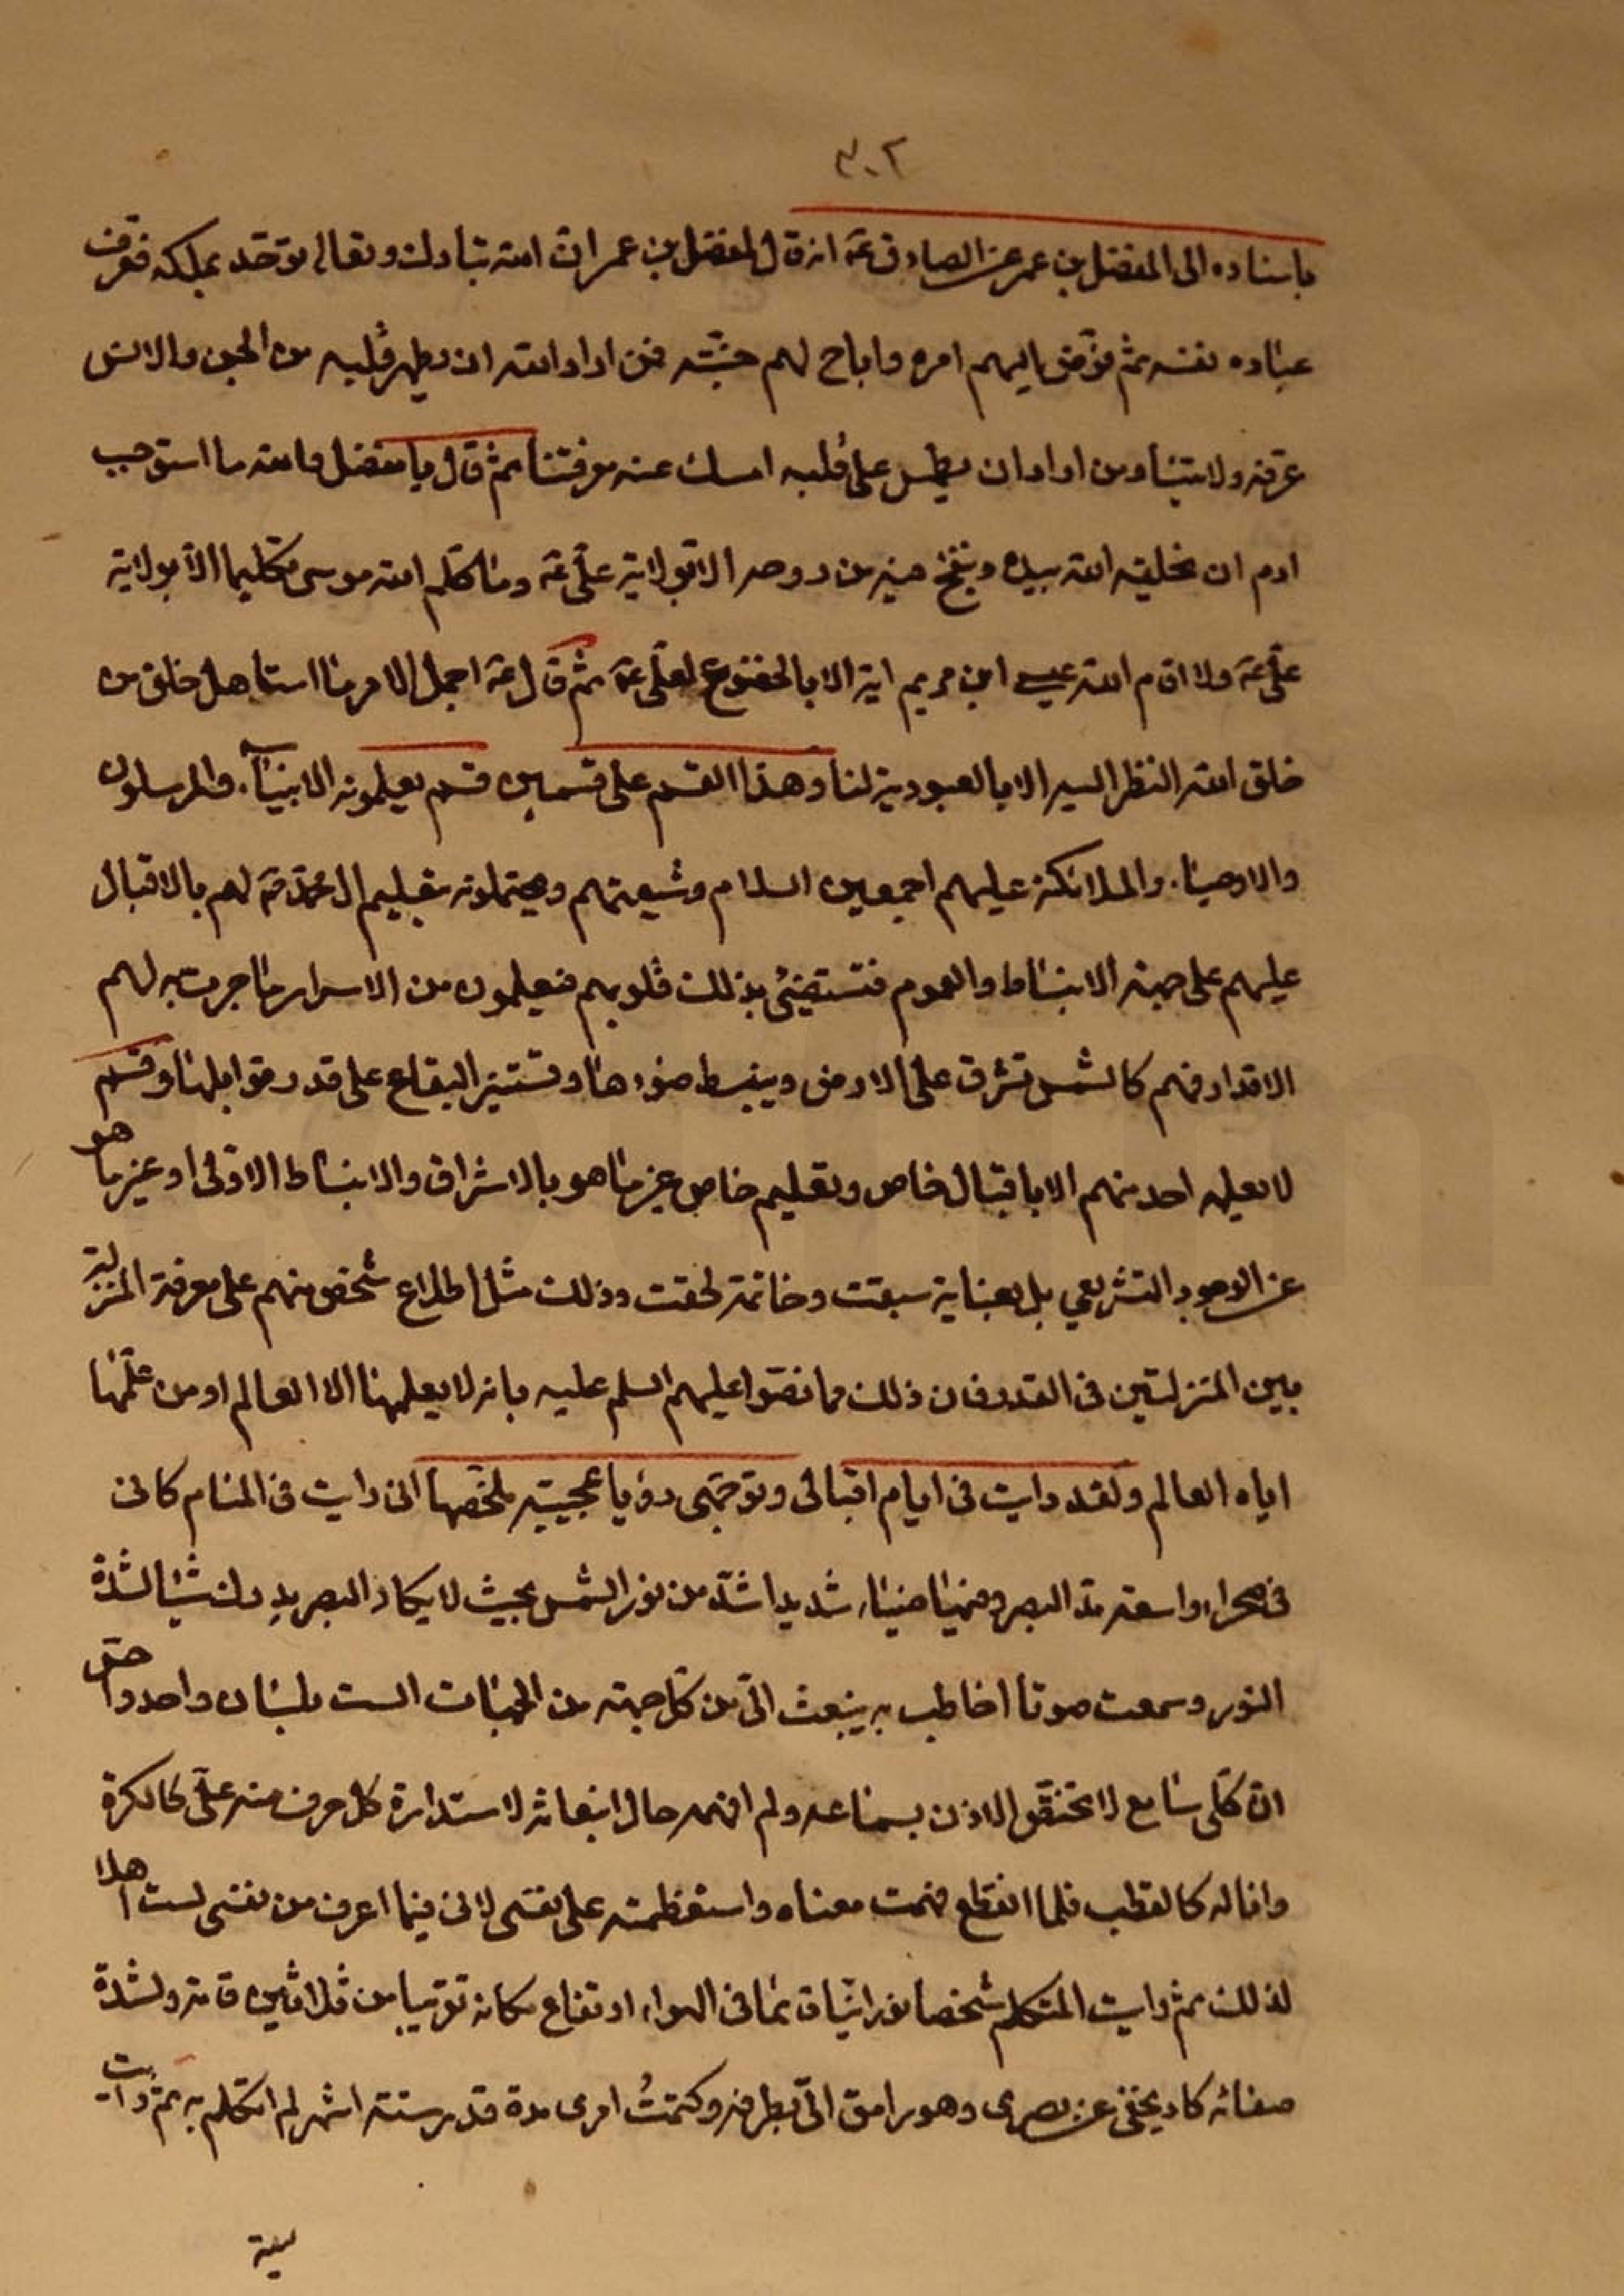 ٣٠٢
باسناده الى المفضل بن عمر عن الصادق عۤ انه قال لمفضل بن عمر ان الله تبارك وتعالى توحّد بملكه فعرّف
عباده نفسه ثم فوّض اليهم امره واباح لهم جنّته فمن اراد الله ان يطهر قلبه من الجن والانس
عرفه ولايتنا ومن اراد ان يطمس على قلبه امسك عنه معرفتنا ثم قال يا مفضل والله ما استوجب
ادم ان يخلقه الله بيده وينفخ فيه من روحه الا بولاية علي عۤ وما كلم الله موسى تكليما الا بولاية
علي عۤ ولا اقام الله عيسى ابن مريم اية الا بالخضوع لعلي عۤ ثم قال عۤ اجمل الامر ما استاهل خلق من
خلق الله النظر اليه الا بالعبودية لنا وهذا القسم على قسمين قسم يعلمونه الانبياء والمرسلون
والاوصياء والملائكة عليهم اجمعين السلام وشيعتهم ويحتملونه بتعليم ال محمد صۤ لهم بالاقبال
عليهم على جهة الانبساط والعموم فتستضئ بذلك قلوبهم فيعلمون من الاسرار ما جرت به لهم
الاقدار فهم كالشمس تشرق على الارض وينبسط ضوءها وتستنير البقاع على قدر قوابلها وقسم
لا يعلمه احد منهم الا باقبال خاص وتعليم خاص غير ما هو بالاشراق والانبساط الاولى او غير ما هو
عن الوجود التشريعي بل بعناية سبقت وخاتمة لحقت وذلك مثل اطلاع شخص منهم على معرفة المنزلة
بين المنزلتين في القدر فان ذلك مما نصّوا عليهم السلم عليه بانه لا يعلمها الا العالم او من علّمها
اياه العالم ولقد رايت في ايام اقبالى وتوجهى رؤيا عجيبه ملخصها انى رايت في المنام كانى
في صحراء واسعة مد البصر وفيها ضياء شديد اشد من نور الشمس بحيث لا يكاد البصر يدرك شيئا لشدة
النور وسمعت صوتا اخاطب به ينبعث الىّ من كل جهة من الجهات الست بلسان واحد واحق
ان كلى سامع لا تختص الاذن بسماعه ولم افهمه حال انبعاثه لاستدارة كل حرف منه علىّ كالكرة
وانا له كالقطب فلما انقطع فهمت معناه واستعظمته على نفسى لانى فيما اعرف من نفسى لست اهلا
لذلك ثم رايت المتكلم شخصا نورانيا قائما في الهواء ارتفاع مكانه تقريبا من ثلاثين قامة ولشدة
صفائه كاد يخفى عن بصرى وهو رامق الىّ بطرفه وكتمتُ امرى مدة قدر ستة اشهر لم اتكلم به ثم رايت